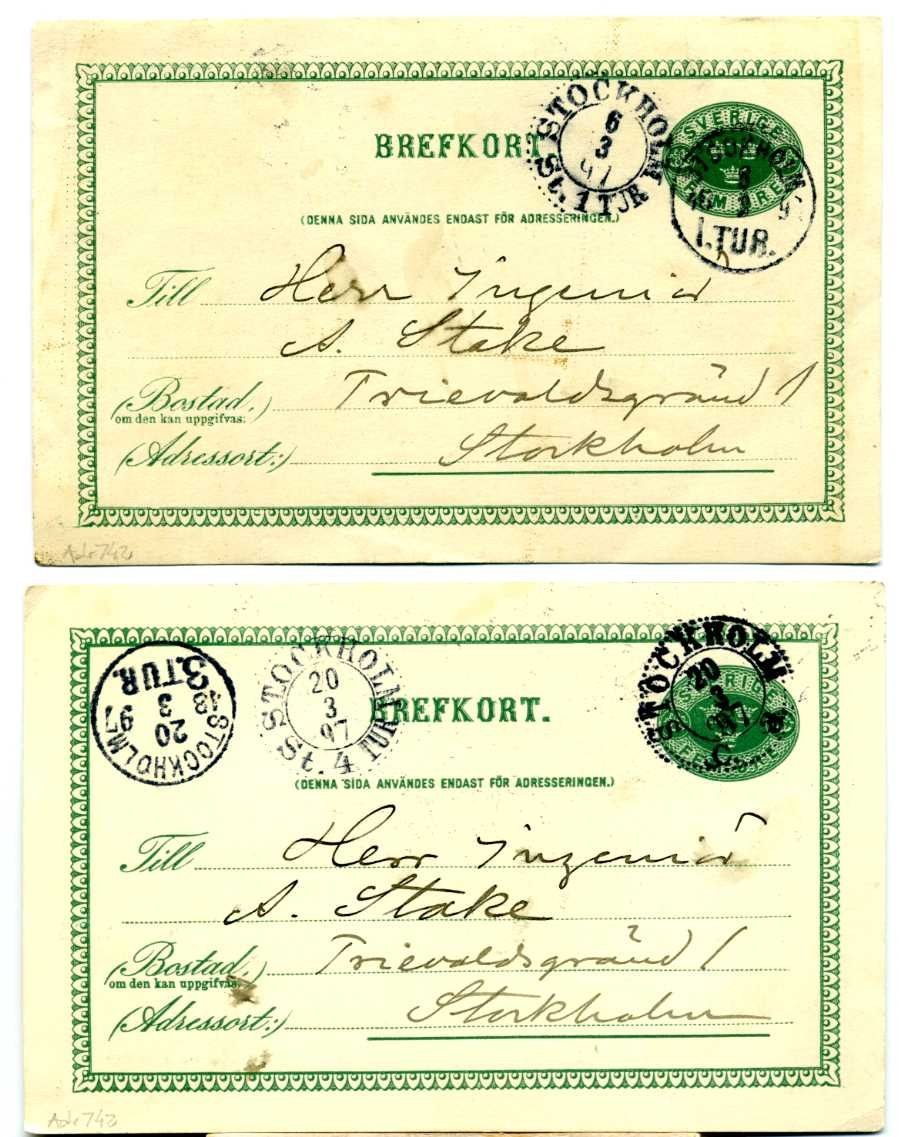 STOCKHOLM
6
3
97
St. 1 TUR
SVERIGE
FEM ÖRE
STOCKHOLM
6
3
1.TUR.
BREFKORT.
(DENNA SIDA ANVÄNDES ENDAST FÖR ADRESSERINGEN.)
Till Herr Ingeniör
A. Stake
(Bostad,) Trievaldsgränd 1
om den kan uppgifvas:
(Adressort:) Stockholm
Adr 742
STOCKHOLM
20
3
97
3.TUR.
STOCKHOLM
20
3
97
St. 4 TUR
STOCKHOLM
20
3
97
C.
SVERIGE
BREFKORT.
(DENNA SIDA ANVÄNDES ENDAST FÖR ADRESSERINGEN.)
Till Herr Ingeniör
A. Stake
(Bostad,) Trievaldsgränd 1
om den kan uppgifvas:
(Adressort:) Stockholm
Adr 742